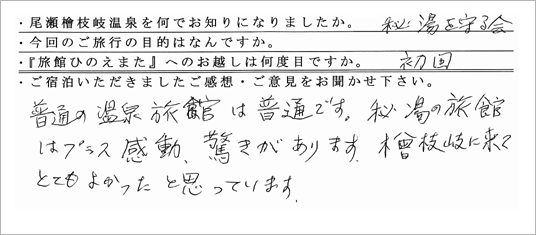 ・尾瀬檜枝岐温泉を何でお知りになりましたか。 秘湯を守る会
・今回のご旅行の目的はなんですか。
・『旅館ひのえまた』へのお越しは何度目ですか。 初回
・ご宿泊いただきましたご感想・ご意見をお聞かせ下さい。
普通の温泉旅館は普通です。秘湯の旅館
はプラス感動、驚きがあります。檜枝岐に来て
とてもよかったと思っています。